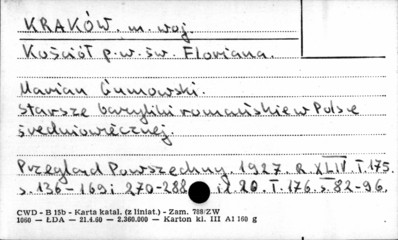 KRAKÓW. m. woj.
Kościół p.w. św. Floriana.
Marian Gumowski.
Starsze bazyliki romańskie w Polsce
średniowiecznej.
Przegląd Powszechny. 1927. R. XLIV. T. 175.
s. 136-169 i 270-288 i t. 20. T. 176. s. 82-96.
CWD - B 15b - Karta katal. (z liniat.) - Zam. 788/ZW
1060 - ŁDA - 21.4.60 - 2.360.000 - Karton kl. III A1 160 g